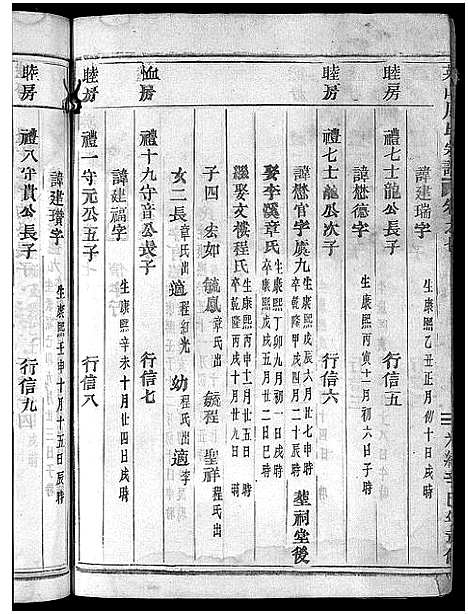 睦房
禮七士龍公長子 行信五
諱建瑞字 生康熙乙丑正月初十日戌時
睦房
禮七士龍公次子 行信六
諱懋德字 生康熙丙寅十一月初六日戌時
諱懋官字虞九 生康熙戊辰六月廿七申時 卒乾隆甲戌四月二十辰時 塟祠堂後
娶李溪章氏 生康熙丁卯九月初一日戌時 卒康熙戊戌五月廿二日巳時
繼娶文欓程氏 生康熙丙申十二月廿五日時 卒乾隆丙戌十月廿九日時
子四 宏如 毓鳳章氏出 毓程 聖祥程氏出
女二長章氏出適程紅光 幼程氏出適李
恤房
禮十九守音公長子 行信七
諱建福字 生康熙辛未十月廿四日戌時
睦房
禮一守元公五子 行信八
諱建瓚字 生康熙壬申十月十五日辰時
睦房
禮八守貴公長子 行信九